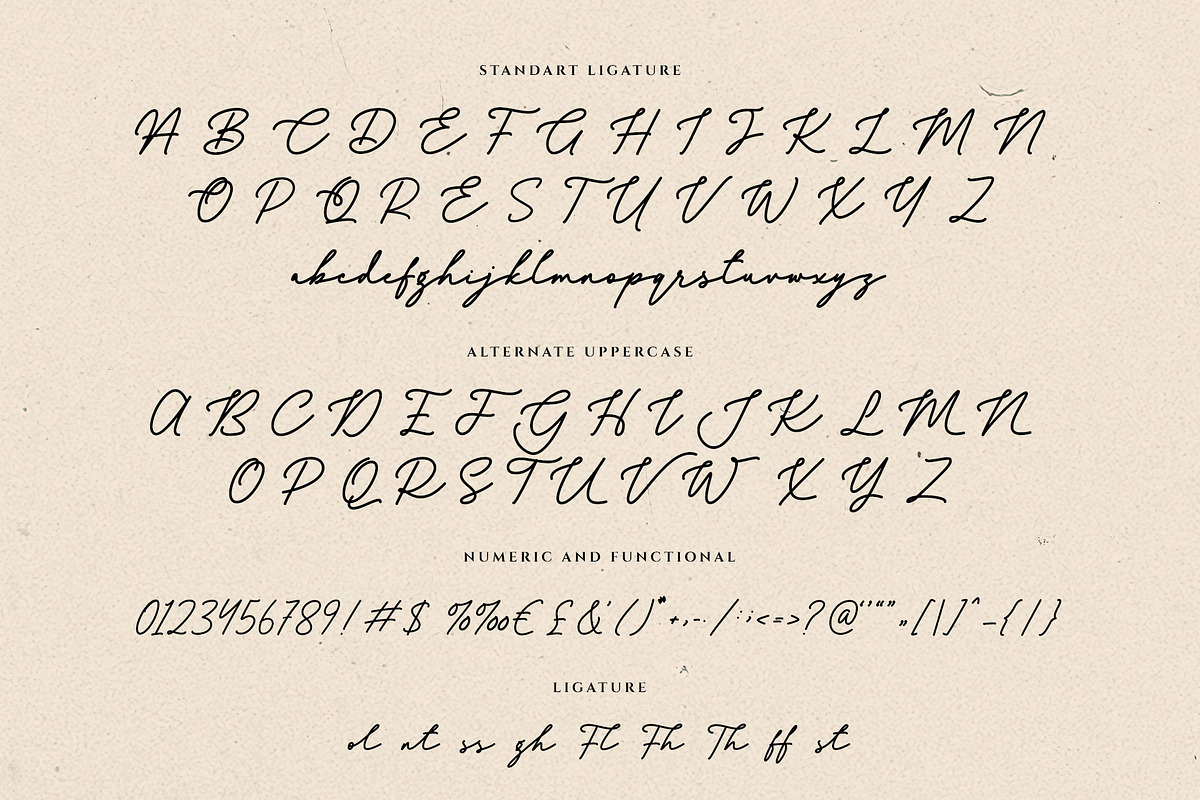 STANDART LIGATURE
A B C D E F G H I J K L M N
O P Q R E S T U V W X Y Z
abcdefghijklmnopqrstuvwxyz
ALTERNATE UPPERCASE
A B C D E F G H I J K L M N
O P Q R S T U V W X Y Z
NUMERIC AND FUNCTIONAL
0123456789!#$ %‰€ £&'()*+,-./:;<=>?@‘’“”„[\]^_{|}
LIGATURE
ol at ss gh Fl Fh Th ff st